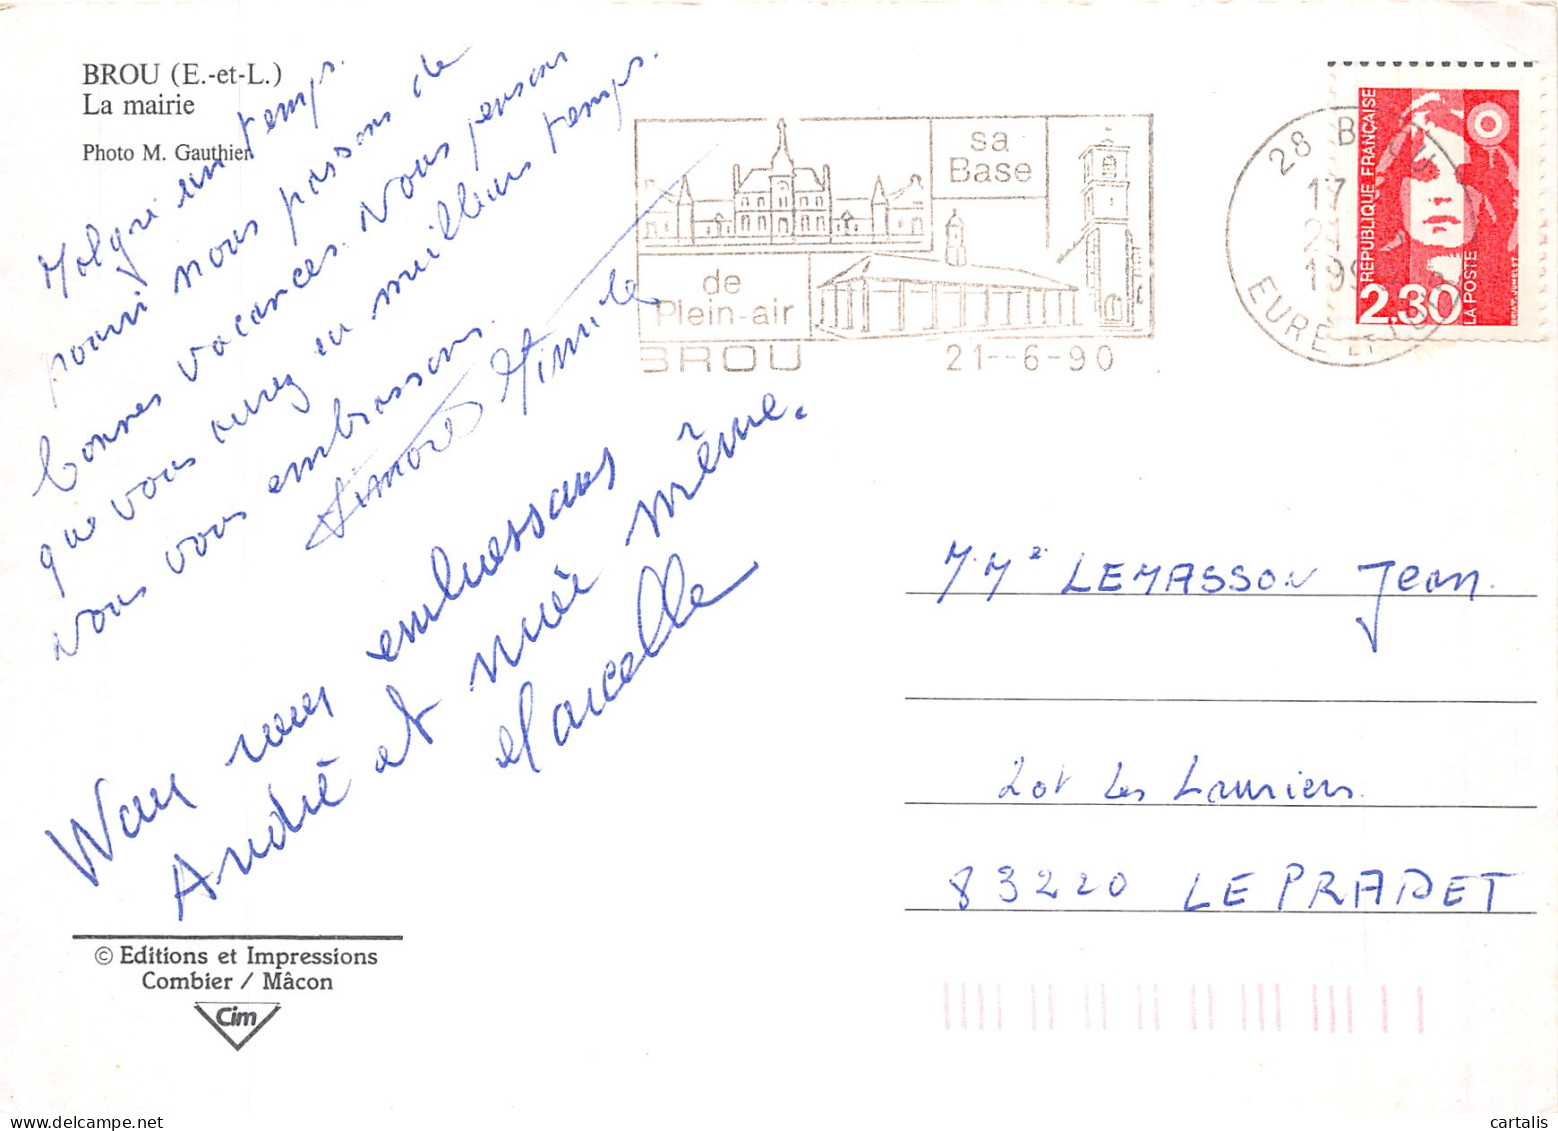 BROU (E.-et-L.)
La mairie
Photo M. Gauthier
Malgré un temps
pourri nous passons de
bonnes vacances. Nous pensons
que vous aurez eu meilleurs temps.
nous vous embrassons.
Simone
Nous vous embrassons
André et moi même.
Marcelle
sa
Base
de
Plein-air
BROU
21--6-90
28 BROU
17
21
199
EURE ET LOIR
REPUBLIQUE FRANÇAISE
2.30
LA POSTE
M. Me LEMASSON Jean.
Lot Les Lauriers.
83220 LE PRADET
© Editions et Impressions
Combier / Mâcon
Cim
cartalis